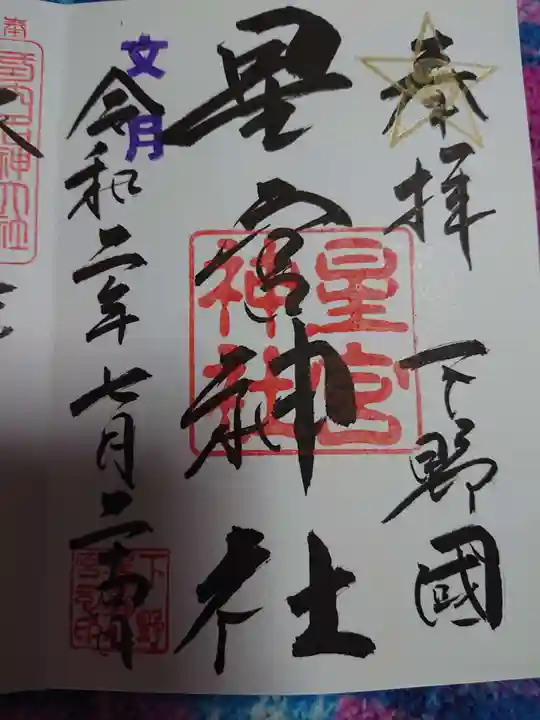 奉拝
下野國
星宮神社
星宮
神社
文月
令和二年七月二十四日
下野
奉